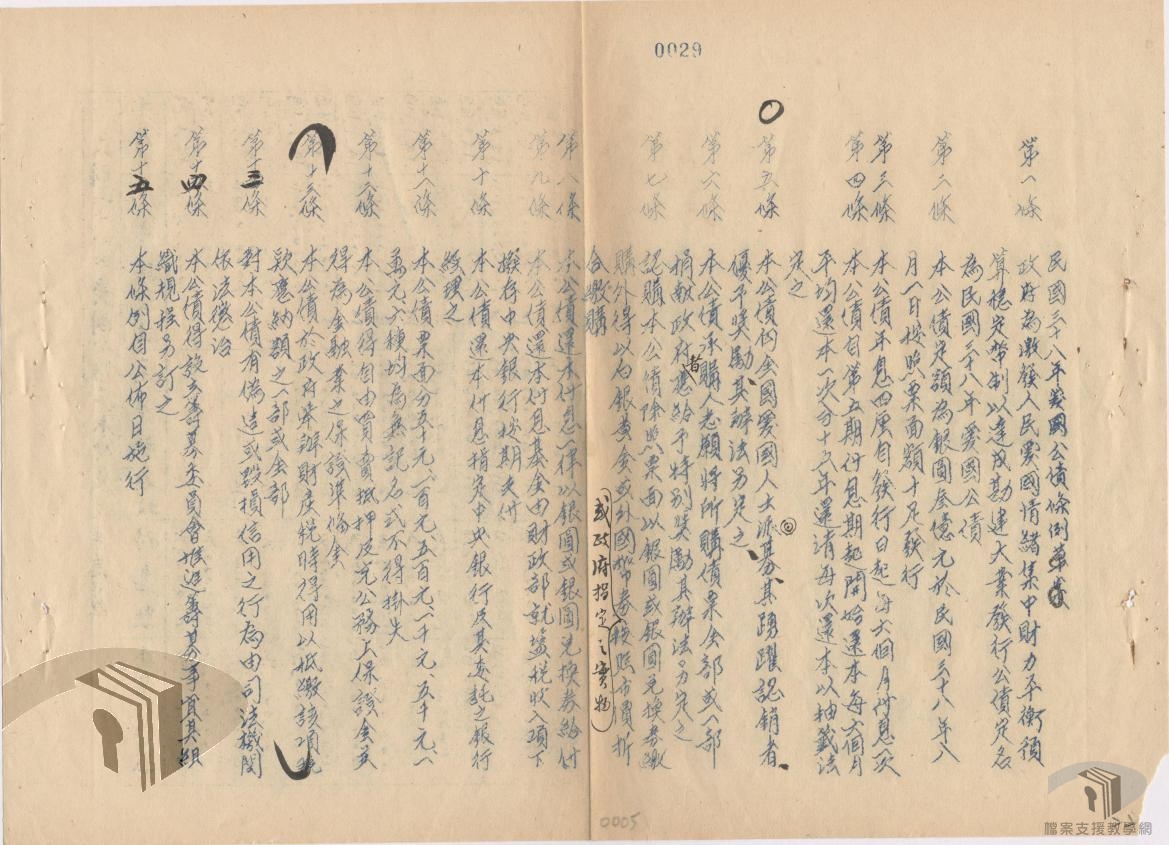 0029
民國三十八年愛國公債條例草案
第一條
政府為激發人民愛國情緒集中財力平衡預
算穩定幣制以達成戡建大業發行公債定名
為民國三十八年愛國公債
第二條
本公債定額為銀圓叁億元於民國三十八年八
月一日按照票面額十足發行
第三條
本公債年息四厘自發行日起每六個月付息一次
第四條
本公債自第五期付息期起開始還本每六個月
平均還本一次分十五年還清每次還本以抽籤法
定之
第五條
本公債向全國愛國人士派募其踴躍認銷者
優予獎勵其辦法另定之
第六條
本公債承購人志願將所購債票全部或一部
捐獻政府者應給予特別獎勵其辦法另定之
第七條
認購本公債除照票面以銀圓或銀圓兌換券繳
購外得以白銀黃金或外國幣券或政府指定之實物按照市價折
合繳購
第八條
本公債還本付息一律以銀圓或銀圓兌換券給付
第九條
本公債還本付息基金由財政部就鹽稅收入項下
撥存中央銀行按期支付
第十條
本公債還本付息指定中央銀行及其委託之銀行
經理之
第十一條
本公債票面分五十元、一百元、五百元、一千元、五千元、一
萬元六種均為無記名式不得掛失
第十二條
本公債得自由買賣抵押及充公務上保證金並
得為金融業之保證準備金
第十三條
本公債於政府舉辦財產稅時得用以抵繳該項稅
款應納額之一部或全部
第十三條
對本公債有偽造或毀損信用之行為由司法機關
依法懲治
第十四條
本公債得設立籌募委員會推進籌募事宜其組
織規程另訂之
第十五條
本條例自公佈日施行
0005
檔案支援教學網